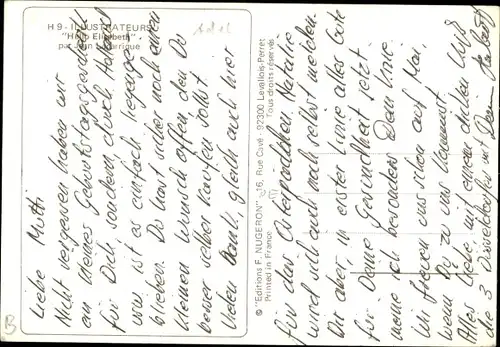 H 9 - ILLUSTRATEURS
"Hello Elisabeth"
par Jean Lagarrigue
Liebe Mutti
Nicht vergessen haben wir
ein kleines Geburtstagsgeschenk
für Dich, sondern durch
war ist es einfach liegenge-
blieben. Du hast sicher noch einen
kleinen Wunsch offen, den Du
selber kaufen sollst.
Vielen Dank, gleich auch hier
© "Editions F. NUGERON" 6, Rue Cavé - 92300 Levallois-Perret
Printed in France Tous droits réservés
für das Osterpäckchen. Natalie
wird sich auch noch selbst melden.
Dir aber in erster Linie alles Gute
für Deine Gesundheit jetzt
meine ich besonders Dein Knie
Wir freuen uns schon auf Mai,
wenn Du zu uns kommst.
Alles Liebe mit einem dicken Kuß
die 3 Düsseldorfer mit